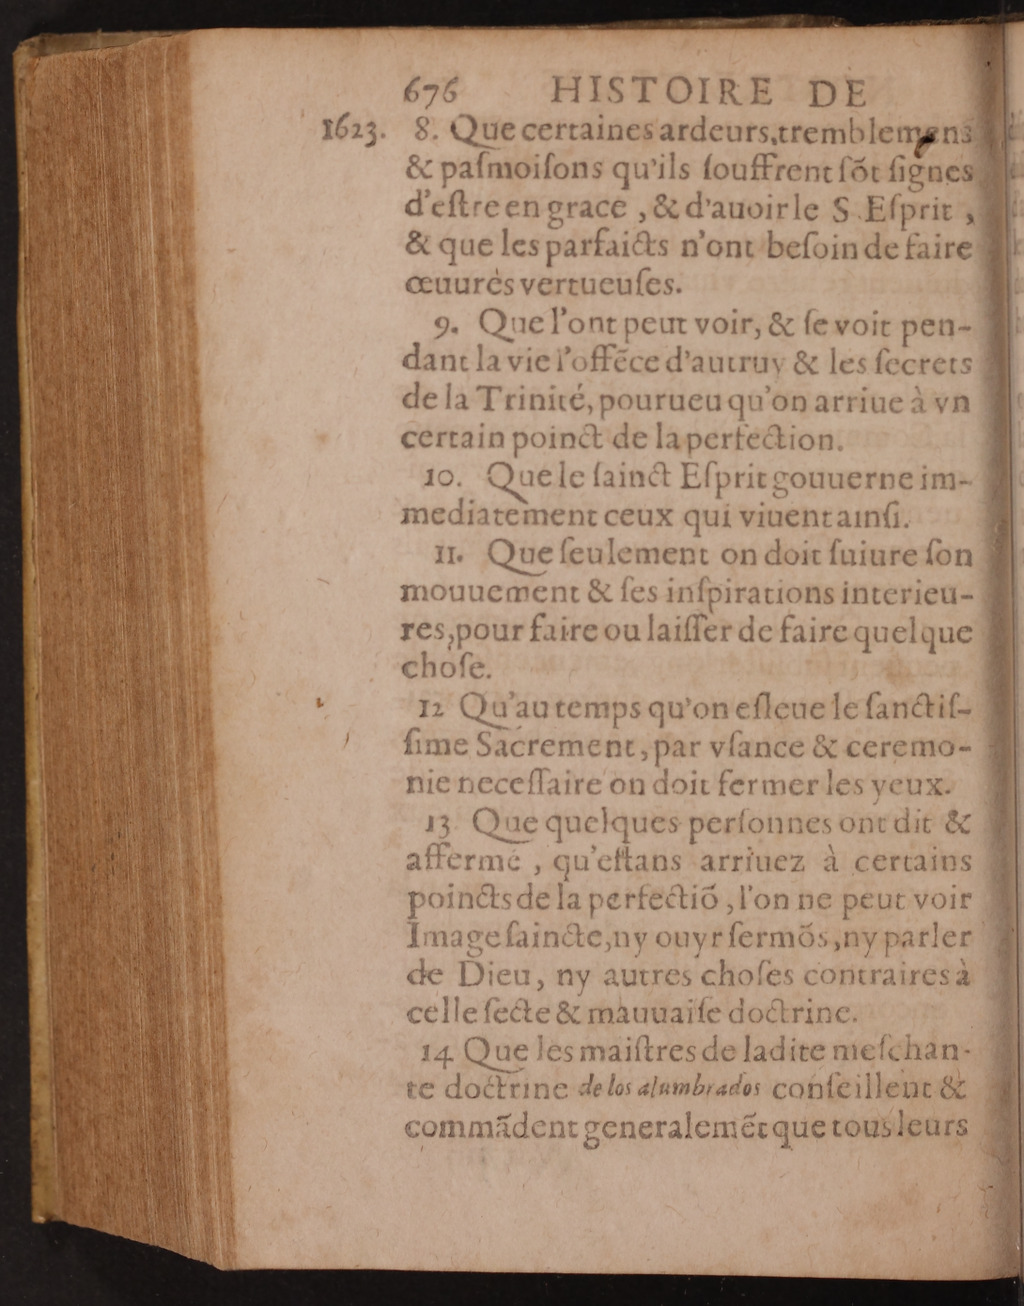 676 HISTOIRE DE
1623. 8. Que certaines ardeurs, tremblemens
& paſmoiſons qu'ils ſouffrent ſõt ſignes
d'eſtre en grace , & d'auoir le S. Eſprit ,
& que les parfaicts n'ont beſoin de faire
œuurés vertueuſes.
9. Que l'ont peut voir, & ſe voit pen-
dant la vie l'offẽce d'autruy & les ſecrets
de la Trinité, pourueu qu'on arriue à vn
certain poinct de la perfection.
10. Que le ſainct Eſprit gouuerne im-
mediatement ceux qui viuent ainſi.
11. Que ſeulement on doit ſuiure ſon
mouuement & ſes inſpirations interieu-
res, pour faire ou laiſſer de faire quelque
choſe.
12 Qu'au temps qu'on eſleue le ſanctiſ-
ſime Sacrement, par vſance & ceremo-
nie neceſſaire on doit fermer les yeux.
13 Que quelques perſonnes ont dit &
affermé , qu'eſtans arriuez à certains
poincts de la perfectiõ , l'on ne peut voir
Image ſaincte, ny ouyr ſermõs, ny parler
de Dieu, ny autres choſes contraires à
celle ſecte & mauuaiſe doctrine.
14 Que les maiſtres de ladite meſchan-
te doctrine de los alumbrados conſeillent &
commãdent generalemẽt que tous leurs